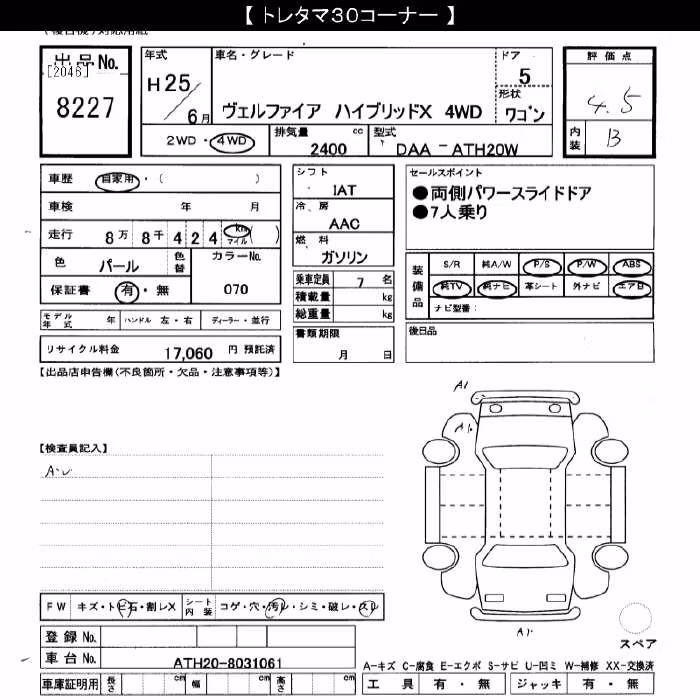 【 トレタマ30コーナー 】
出品No.
[2046]
8227
年式
H25/6月
車名・グレード
ヴェルファイア ハイブリッドX 4WD
ドア
5
形状
ワゴン
2WD・4WD
排気量 cc
2400
型式
DAA－ATH20W
評価点
4.5
内装
B
車歴 自家用・( )
車検 年 月
走行 8万 8千 4 2 4 km マイル ( )
色 パール 色替
カラーNo.
070
保証書 有・無
モデル年式 年 ハンドル 左・右 ディーラー・並行
リサイクル料金 17,060 円 預託済
シフト
IAT
冷房
AAC
燃料
ガソリン
乗車定員 7 名
積載量 kg
総重量 kg
書類期限
月 日
セールスポイント
●両側パワースライドドア
●7人乗り
装備品
S/R 純A/W P/S P/W ABS
純TV 純ナビ 革シート 外ナビ エアB
ナビ型番：
後日品
【出品店申告欄(不良箇所・欠品・注意事項等)】
【検査員記入】
A1
A1
A1
スペア
FW キズ・トビ石・割レX シート内装 コゲ・穴・汚レ・シミ・破レ・スレ
登録No.
車台No. ATH20-8031061
車庫証明用 長さ cm 幅 cm 高さ cm
A-キズ C-腐食 E-エクボ S-サビ U-凹ミ W-補修 XX-交換済
工具 有・無 ジャッキ 有・無